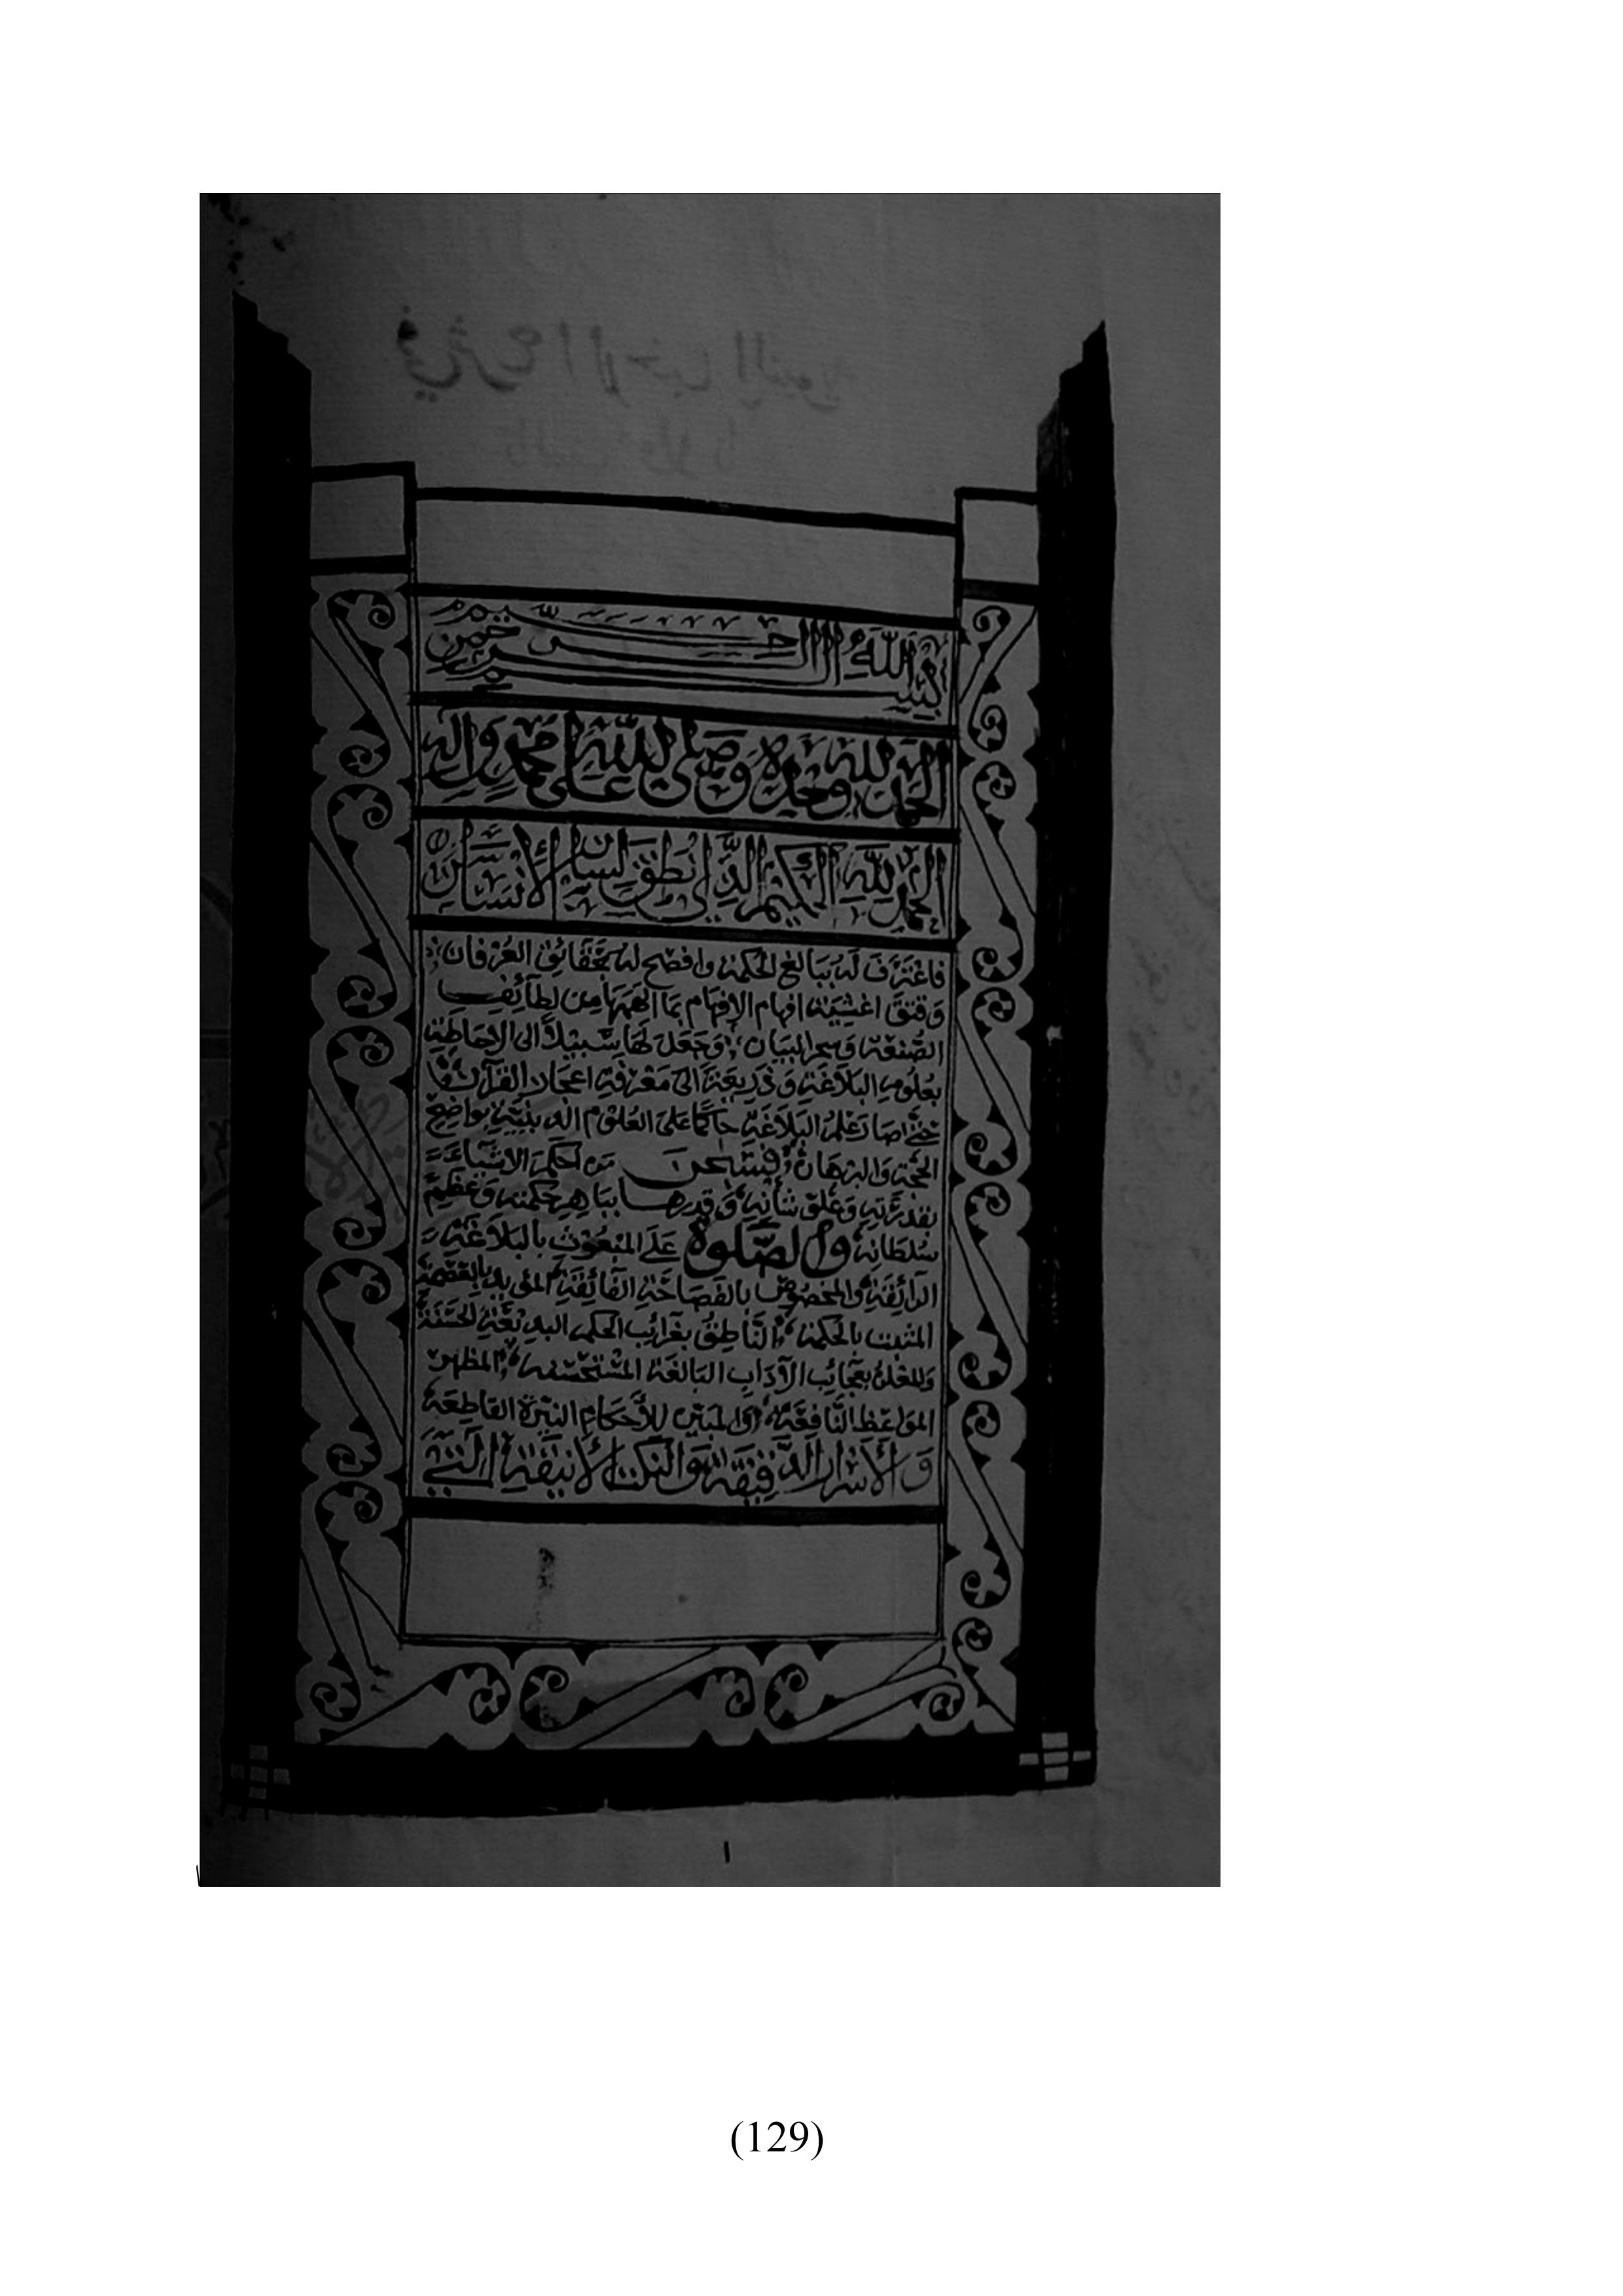 في شرح الاخبا النبوية
تاليف مولانا
بسم الله الرحمن الرحيم
الحمد لله وحده وَصَلى الله على محمد وَاله
الحمد لله الحكيم الذي انطق لسان الأنسان
فاغترف له ببالغ الحكمة وافصح له بحقائق العرفان
وفتق اغشية افهام الافهام بما الهمها من لطآئف
الصّنعة وسحر البيان وجَعَلَ لَهَا سَبيلاً الى الاحاطة
بعُلومِ البَلاغَةِ وَذريعَةً الىَ مَعْرفةِ اعجاز القرآن
حتى صار عِلمُ البَلاَغَةِ حاكمًا على العُلوم الدينيةِ بواضح
الحُجّة وَالبرهَان فسُبْحن من احكمَ الاشياءَ
بقدْرَتهِ وَعُلوّ شأنِه وَقدرها ببَاهرِ حِكمته وَعظيم
سُلطانِه وَالصَّلوة عَلَى المَبعُوث بالبلاغَةِ
الرائقةِ والمخصوص بالفصَاحَةِ الفآئقةِ المؤيد بالعصمة
المثبت بالحكمة النَّاطِق بغرآئب الحكم البديْعَةِ الحَسَنَة
بعجآئب الآدَاب البَالغَة المسْتحسَنه المظهر
المواعظ النَّافِعَة وَالمبيّن للأحكامِ النيّرة القاطِعَة
وَ الأسْرارِ الدَّقيقَة وَالنكتِ الأنيقَةِ الَّتي
١
(129)